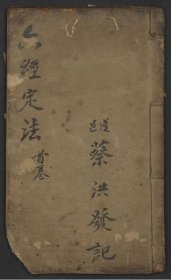 六經定法
首卷
蔡洪發記